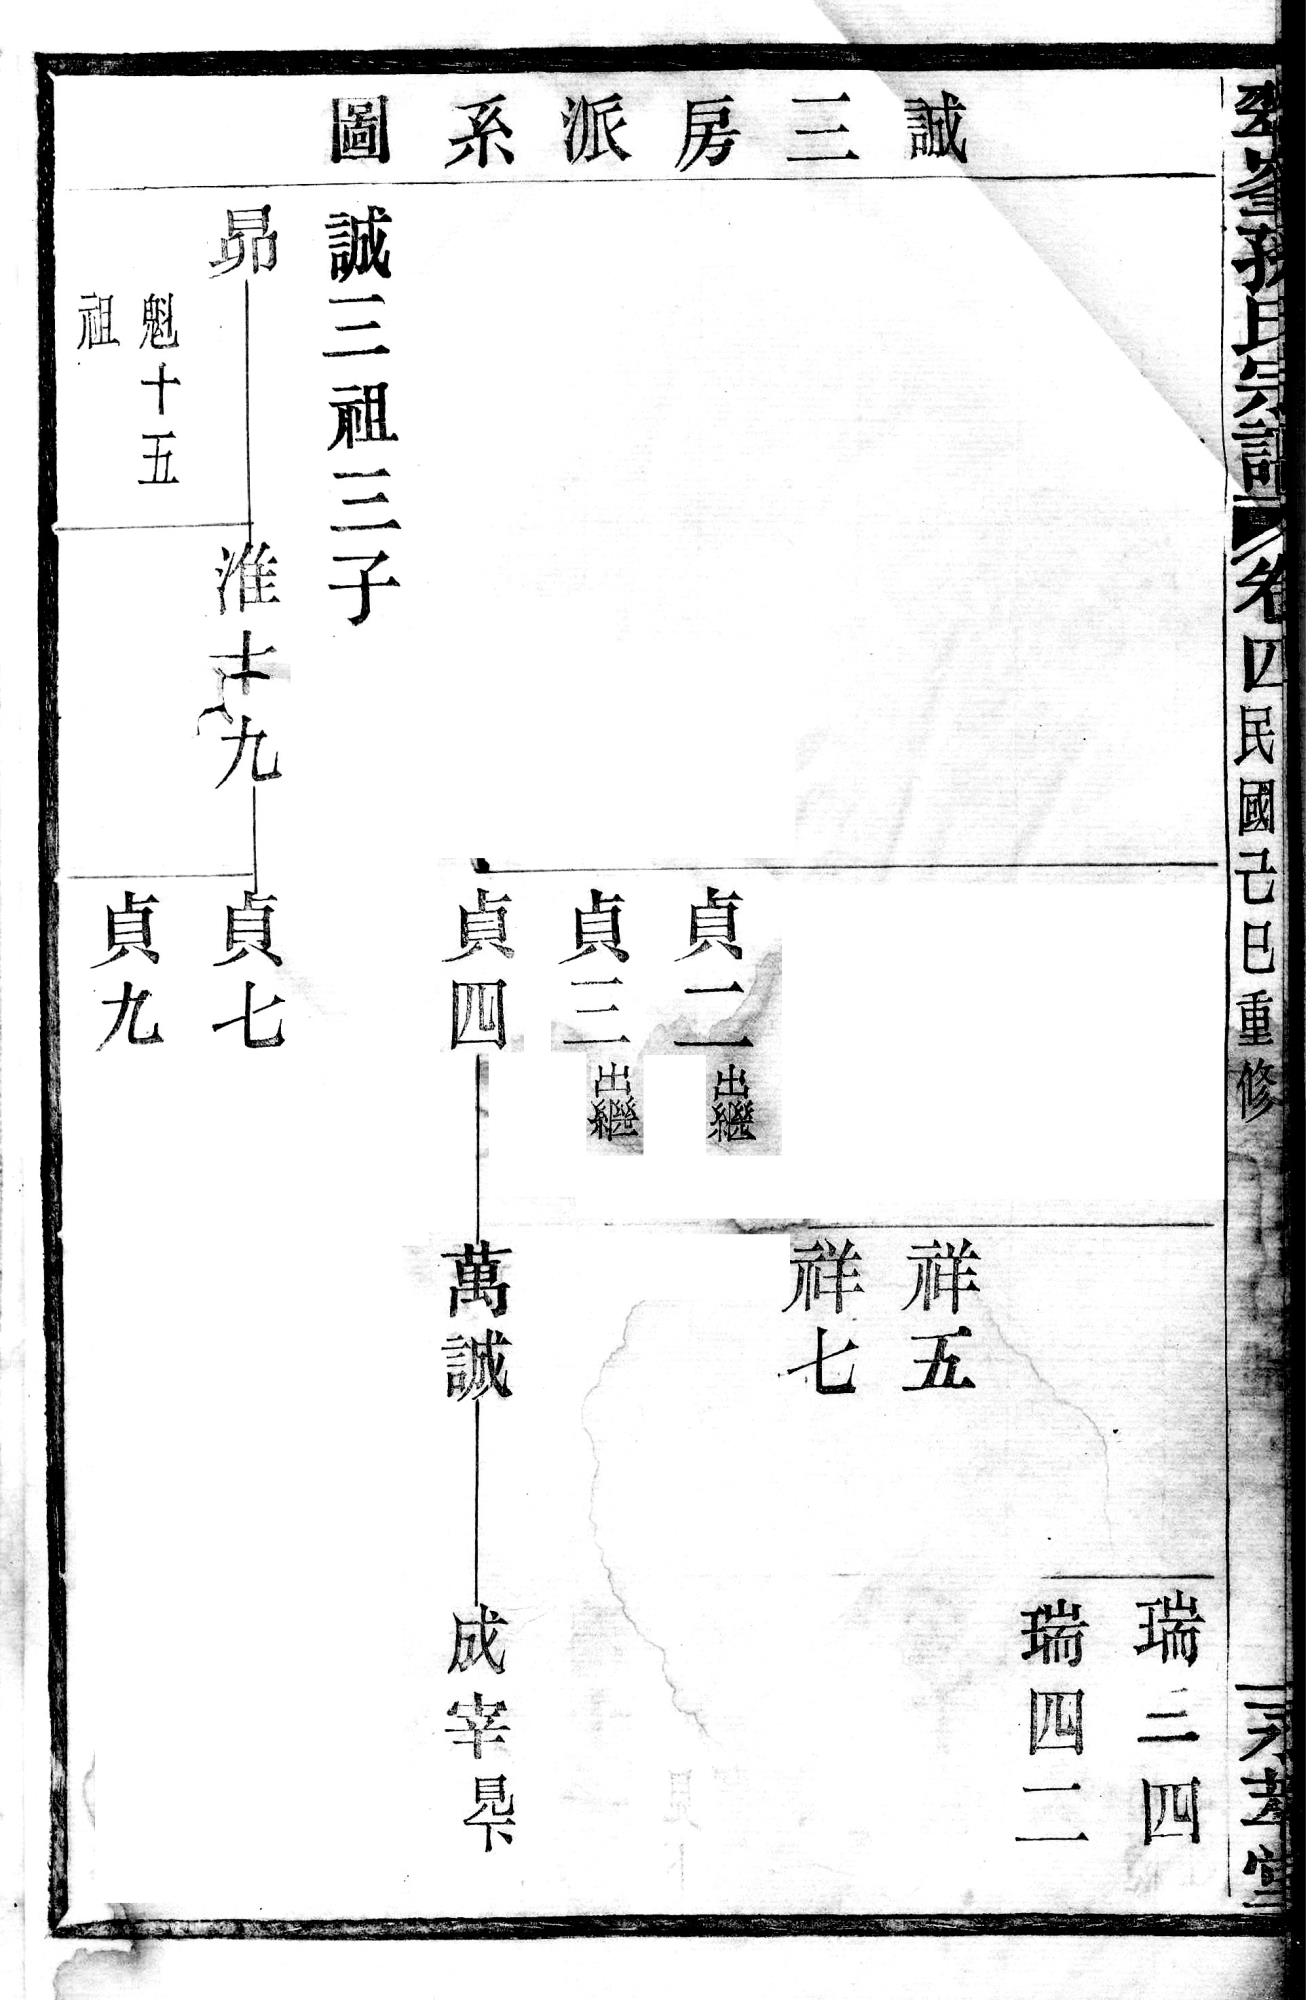 誠三房派系圖
孫氏宗譜
卷四民國己巳重修
孝堂
瑞二四
瑞四二
祥五
祥七
貞二出繼
貞三出繼
貞四
萬誠
成宰見下
誠三祖三子
昴
淮十九
貞七
魁十五
祖
貞九